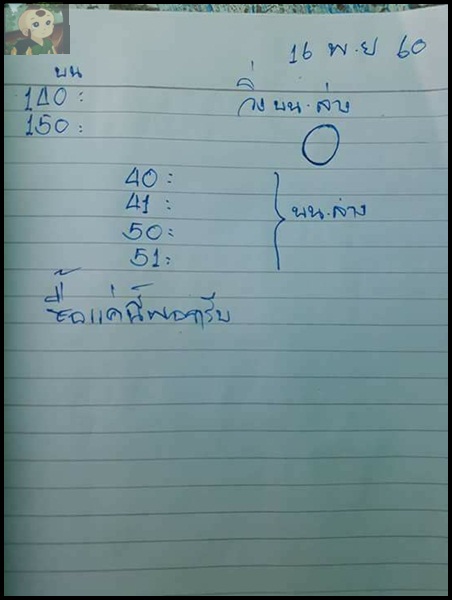 16 พ.ย 60
บน
140:
150:
วิ่ง บน.ล่าง
0
40:
41:
50:
51:
บน.ล่าง
ซื้อแค่นี้พอครับ